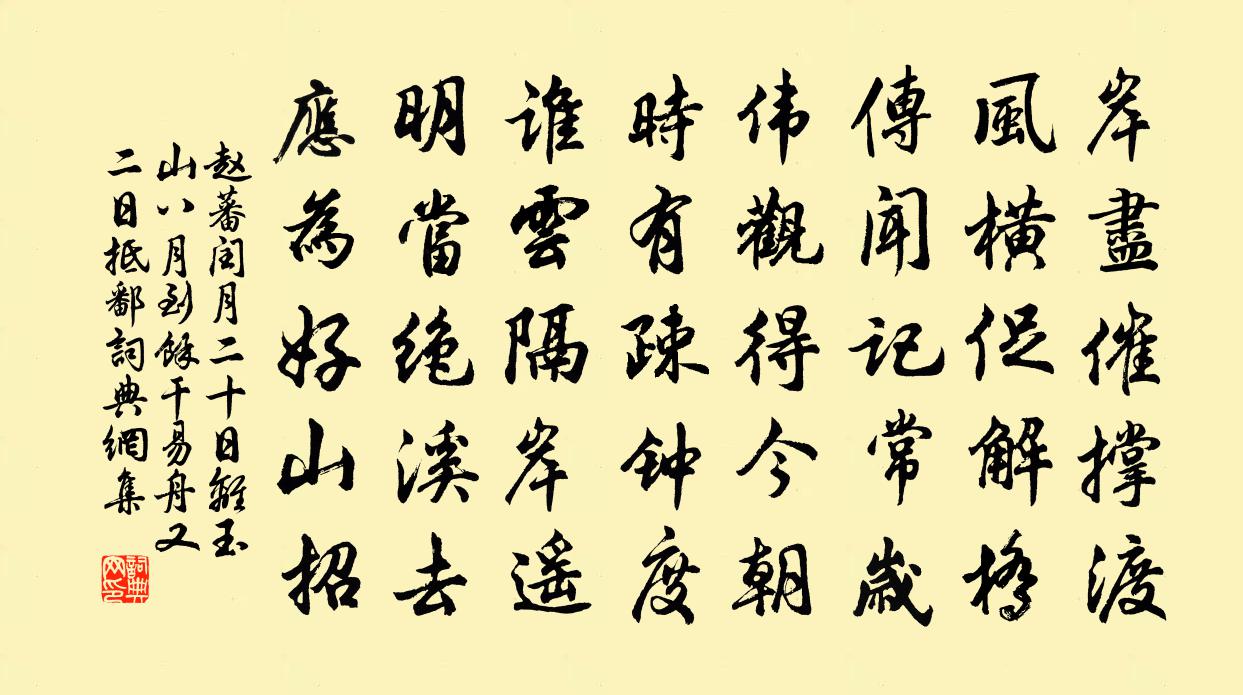 岸盡催撑渡
風橫促解橋
傳聞記常歲
伟觀得今朝
時有疎钟度
誰雲隔岸遥
明當绝溪去
應為好山招
赵蕃闰月二十日離玉
山八月到餘干易舟又
二日抵鄱詞典網集
詞典
网印